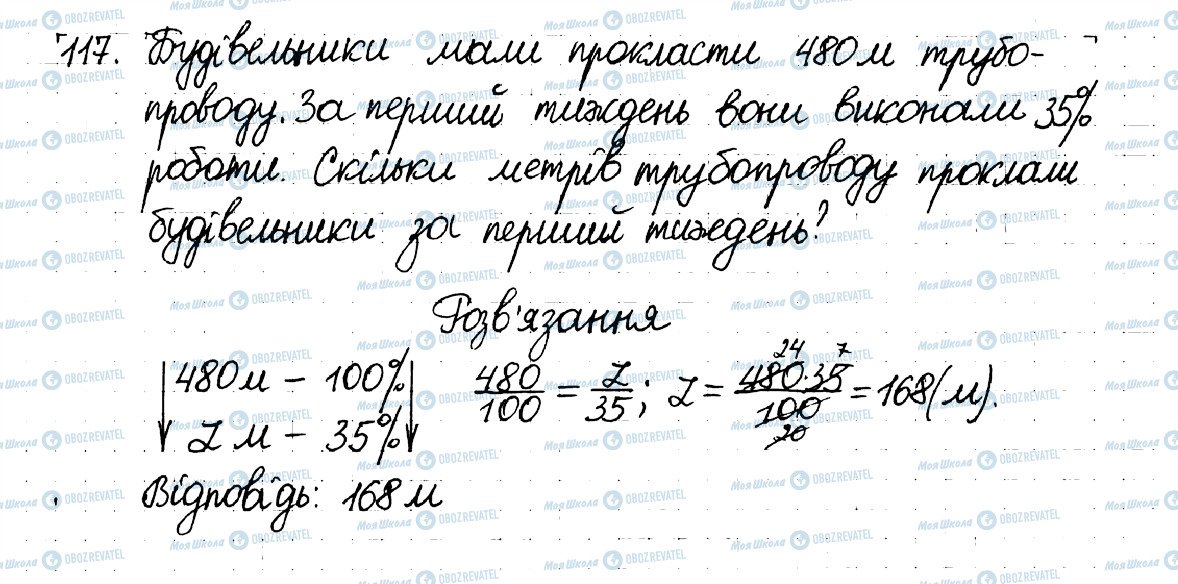 117. Будівельники мали прокласти 480 м трубо-
проводу. За перший тиждень вони виконали 35%
роботи. Скільки метрів трубопроводу проклали
будівельники за перший тиждень?
Розв'язання
480 м – 100%
z м – 35%
480/100 = z/35; z = 480·35/100 = 168 (м).
24 7
20
Відповідь: 168 м
Моя Школа OBOZREVATEL